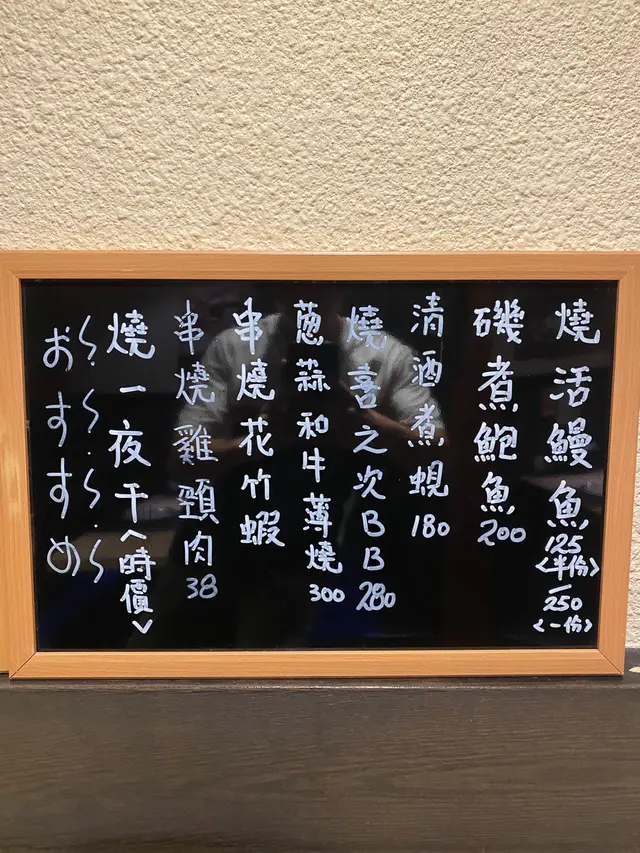 燒活鰻魚125<半份>250<一份>
磯煮鮑魚200
清酒煮蜆180
燒喜之次BB280
蔥蒜和牛薄燒300
串燒花竹蝦
串燒雞頸肉38
燒一夜干<時價>
おすすめ